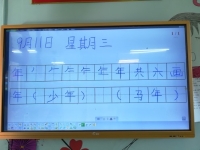 9月11日 星期三
年 丿 𠂉 年 共六画
年（少年）（马年）